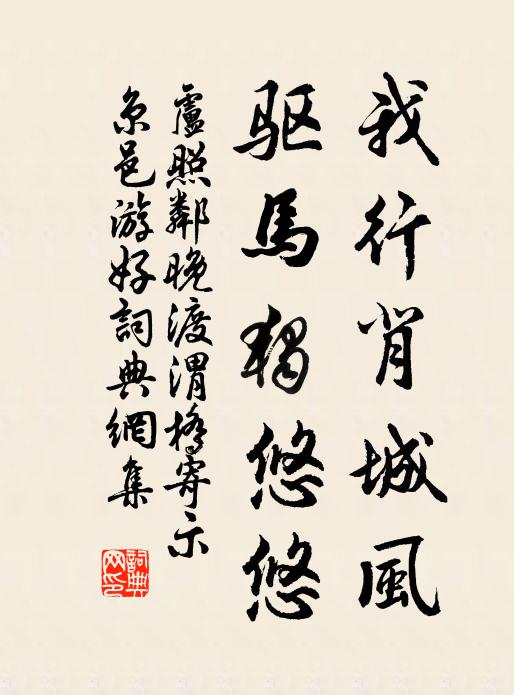 我行背城風
驱馬獨悠悠
盧照鄰晚渡渭橋寄示
京邑游好詞典網集
詞典
网印